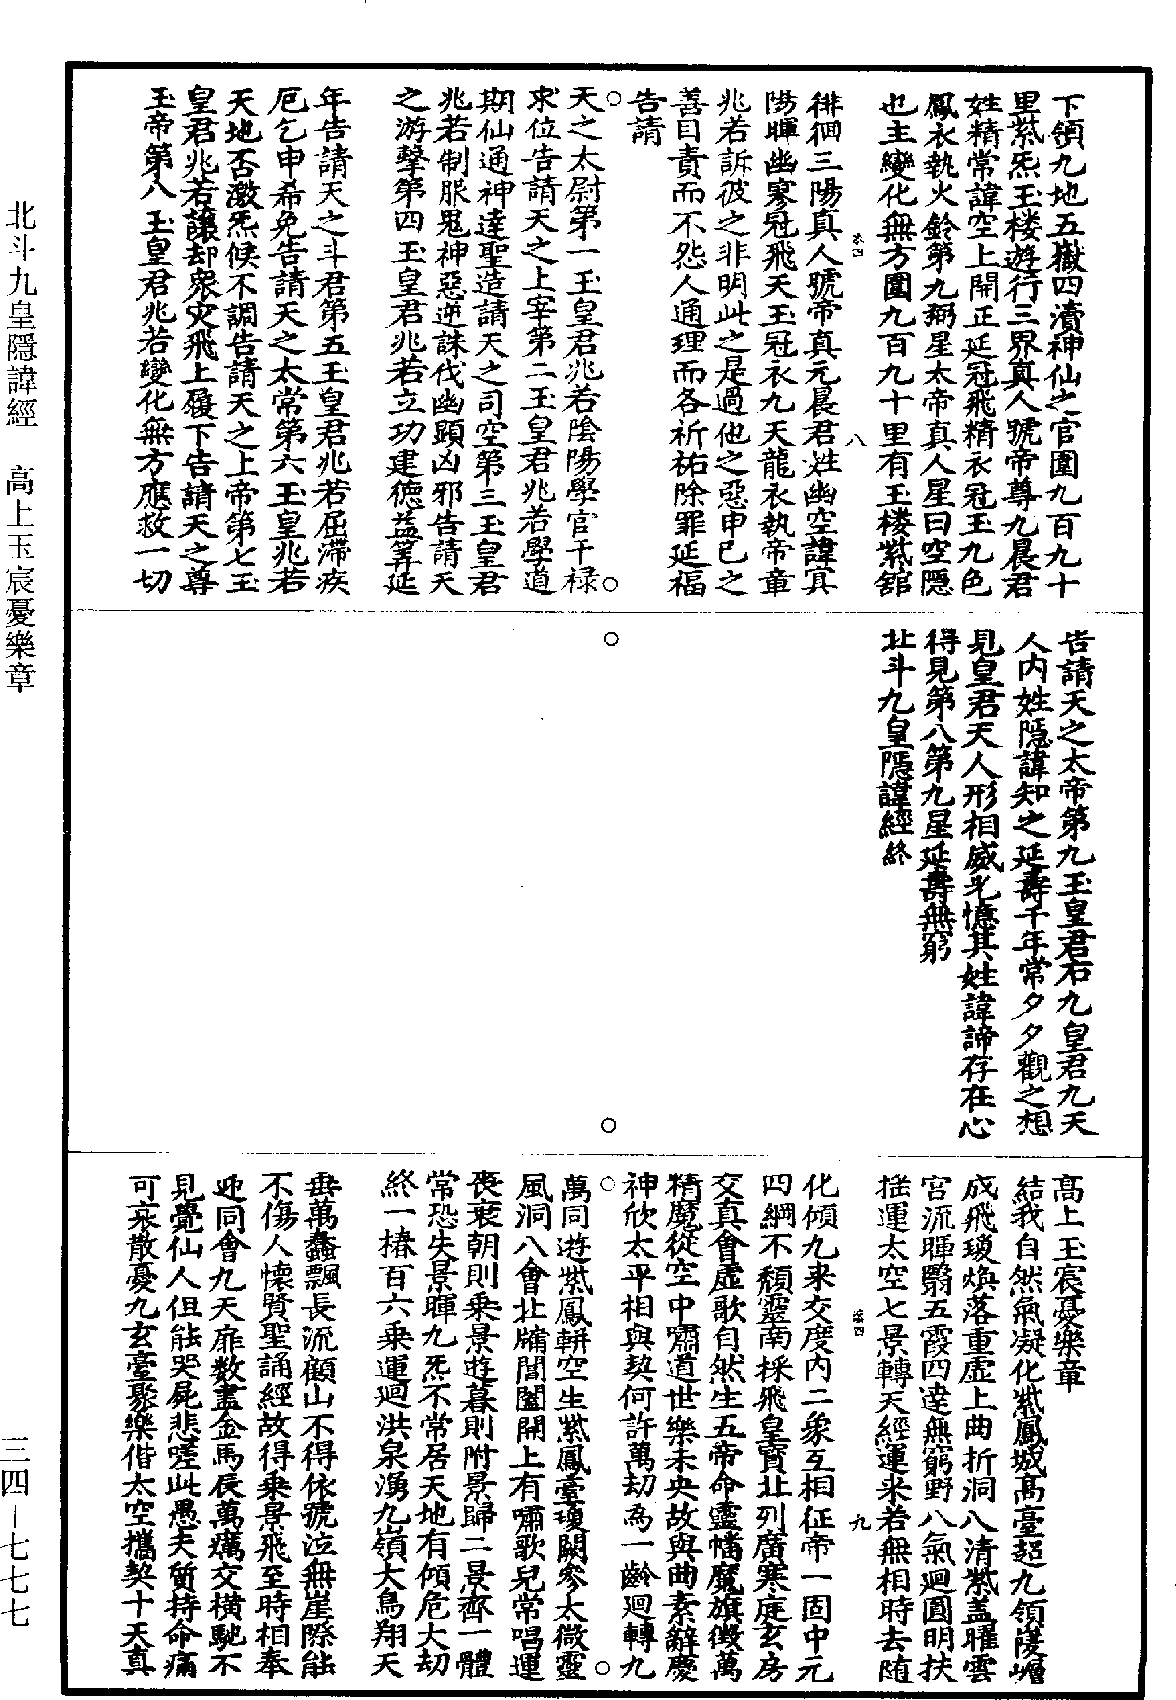 北斗九皇隱諱經　高上玉宸憂樂章
三四—七七七
下領九地五嶽四瀆神仙之官圍九百九十
里紫炁玉樓遊行三界真人號帝尊九晨君
姓精常諱空上開正延冠飛精衣冠玉九色
鳳衣執火鈴第九弼星太帝真人星曰空隱
也主變化無方圍九百九十里有玉樓紫舘
八
徘徊三陽真人號帝真元晨君姓幽空諱冥
陽暉幽寥冠飛天玉冠衣九天龍衣執帝章
兆若訴彼之非明此之是過他之惡申已之
善目責而不怨人通理而各祈祐除罪延福
告請
天之太尉第一玉皇君兆若陰陽學官干祿
求位告請天之上宰第二玉皇君兆若學道
期仙通神達聖造請天之司空第三玉皇君
兆若制服鬼神惡逆誅伐幽顕凶邪告請天
之游擊第四玉皇君兆若立功建德益筭延
年告請天之斗君第五玉皇君兆若屈滯疾
厄乞申希免告請天之太常第六玉皇兆若
天地否激炁候不調告請天之上帝第七玉
皇君兆若讓却衆灾飛上履下告請天之尊
玉帝第八玉皇君兆若變化無方應救一切
告請天之太帝第九玉皇君右九皇君九天
人内姓隱諱知之延壽千年常夕夕觀之想
見皇君天人形相威光憶其姓諱諦存在心
得見第八第九星延壽無窮
北斗九皇隱諱經終
高上玉宸憂樂章
結我自然氣凝化紫鳳城高臺超九領陵嶒
成飛瓊煥落重虛上曲折洞八清紫盖曜雲
宮流暉翳五霞四達無窮野八氣迴圓明扶
搖運太空七景轉天經運来若無相時去随
九
化傾九来交度内二象互相征帝一固中元
四綱不頹靈南採飛皇寶北列廣寒庭玄房
交真會虛歌自然生五帝命靈幡魔旗徵萬
精魔從空中嘯道世樂未央故與曲素辭慶
神欣太平相與契何許萬劫為一齡迴轉九
萬同遊紫鳳軿空生紫鳳臺瓊闕參太微靈
風洞八會北牖閶闔開上有嘯歌兒常唱運
喪衰朝則乘景遊暮則附景歸二景齊一體
常恐失景暉九炁不常居天地有傾危大劫
終一椿百六乘運迴洪泉湧九嶺大鳥翔天
垂萬蠡飄長流顧山不得依號泣無崖際能
不傷人懷賢聖誦經故得乘景飛至時相奉
迎同會九天扉数盡金馬辰萬癘交橫馳不
見覺仙人但能哭屍悲嗟此愚夫質持命痛
可哀散憂九玄臺聚樂偕太空攜契十天真